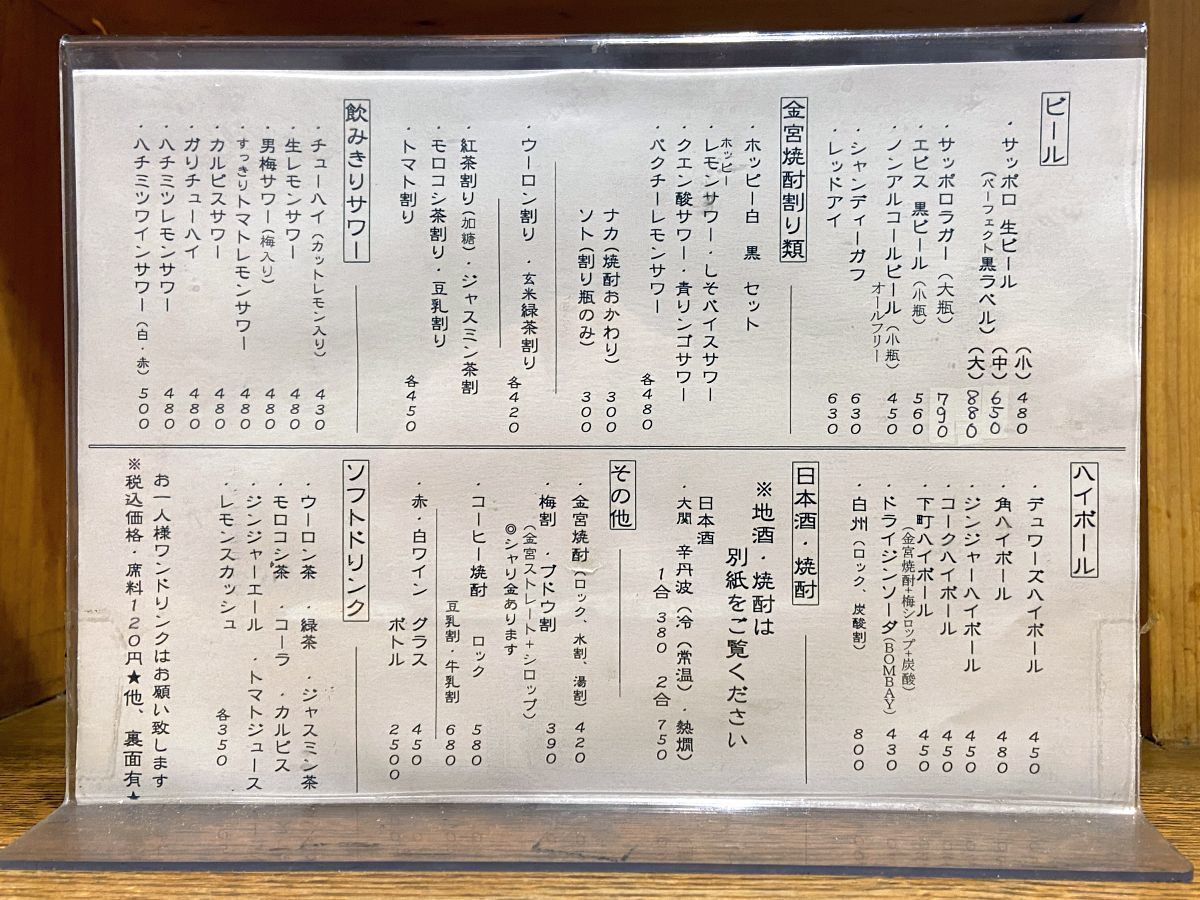 ビール
・サッポロ 生ビール (小) 480
(パーフェクト黒ラベル) (中) 650
(大) 880
・サッポロラガー(大瓶) 790
・エビス 黒ビール(小瓶) 560
・ノンアルコールビール(小瓶) 450
オールフリー
・シャンディーガフ 630
・レッドアイ 630
金宮焼酎割り類
・ホッピー白 黒 セット
ホッピー
・レモンサワー・しそバイスサワー
・クエン酸サワー・青リンゴサワー
・パクチーレモンサワー 各480
ナカ(焼酎おかわり) 300
ソト(割り瓶のみ) 300
・ウーロン割り ・玄米緑茶割り 各420
・紅茶割り(加糖)・ジャスミン茶割
・モロコシ茶割り・豆乳割り
・トマト割り 各450
飲みきりサワー
・チューハイ(カットレモン入り) 430
・生レモンサワー 480
・男梅サワー(梅入り) 480
・すっきりトマトレモンサワー 480
・カルピスサワー 480
・ガリチューハイ 480
・ハチミツレモンサワー 480
・ハチミツワインサワー(白・赤) 500
ハイボール
・デュワーズハイボール 450
・角ハイボール 480
・ジンジャーハイボール 450
・コークハイボール 450
・下町ハイボール 450
(金宮焼酎+梅シロップ+炭酸)
・ドライジンソーダ(BOMBAY) 430
・白州(ロック、炭酸割) 800
日本酒・焼酎
※地酒・焼酎は
別紙をご覧ください
日本酒
・大関 辛丹波(冷(常温)・熱燗)
1合 380 2合 750
その他
・金宮焼酎(ロック、水割、湯割) 420
・梅割・ブドウ割 390
(金宮ストレート+シロップ)
◎シャリ金あります
・コーヒー焼酎 ロック 580
豆乳割・牛乳割 680
・赤・白ワイン グラス 450
ボトル 2500
ソフトドリンク
・ウーロン茶 ・緑茶 ・ジャスミン茶
・モロコシ茶 ・コーラ ・カルピス
・ジンジャーエール ・トマトジュース
・レモンスカッシュ 各350
お一人様ワンドリンクはお願い致します
※税込価格・席料120円★他、裏面有★